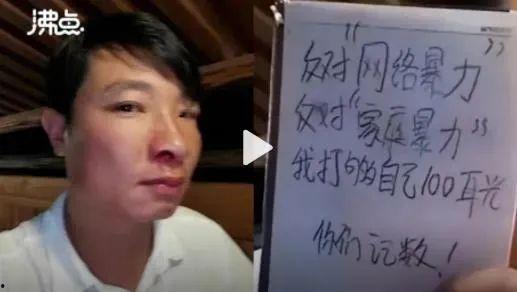 沸点
反对“网络暴力”
反对“家庭暴力”
我打自己100耳光
你们记数！